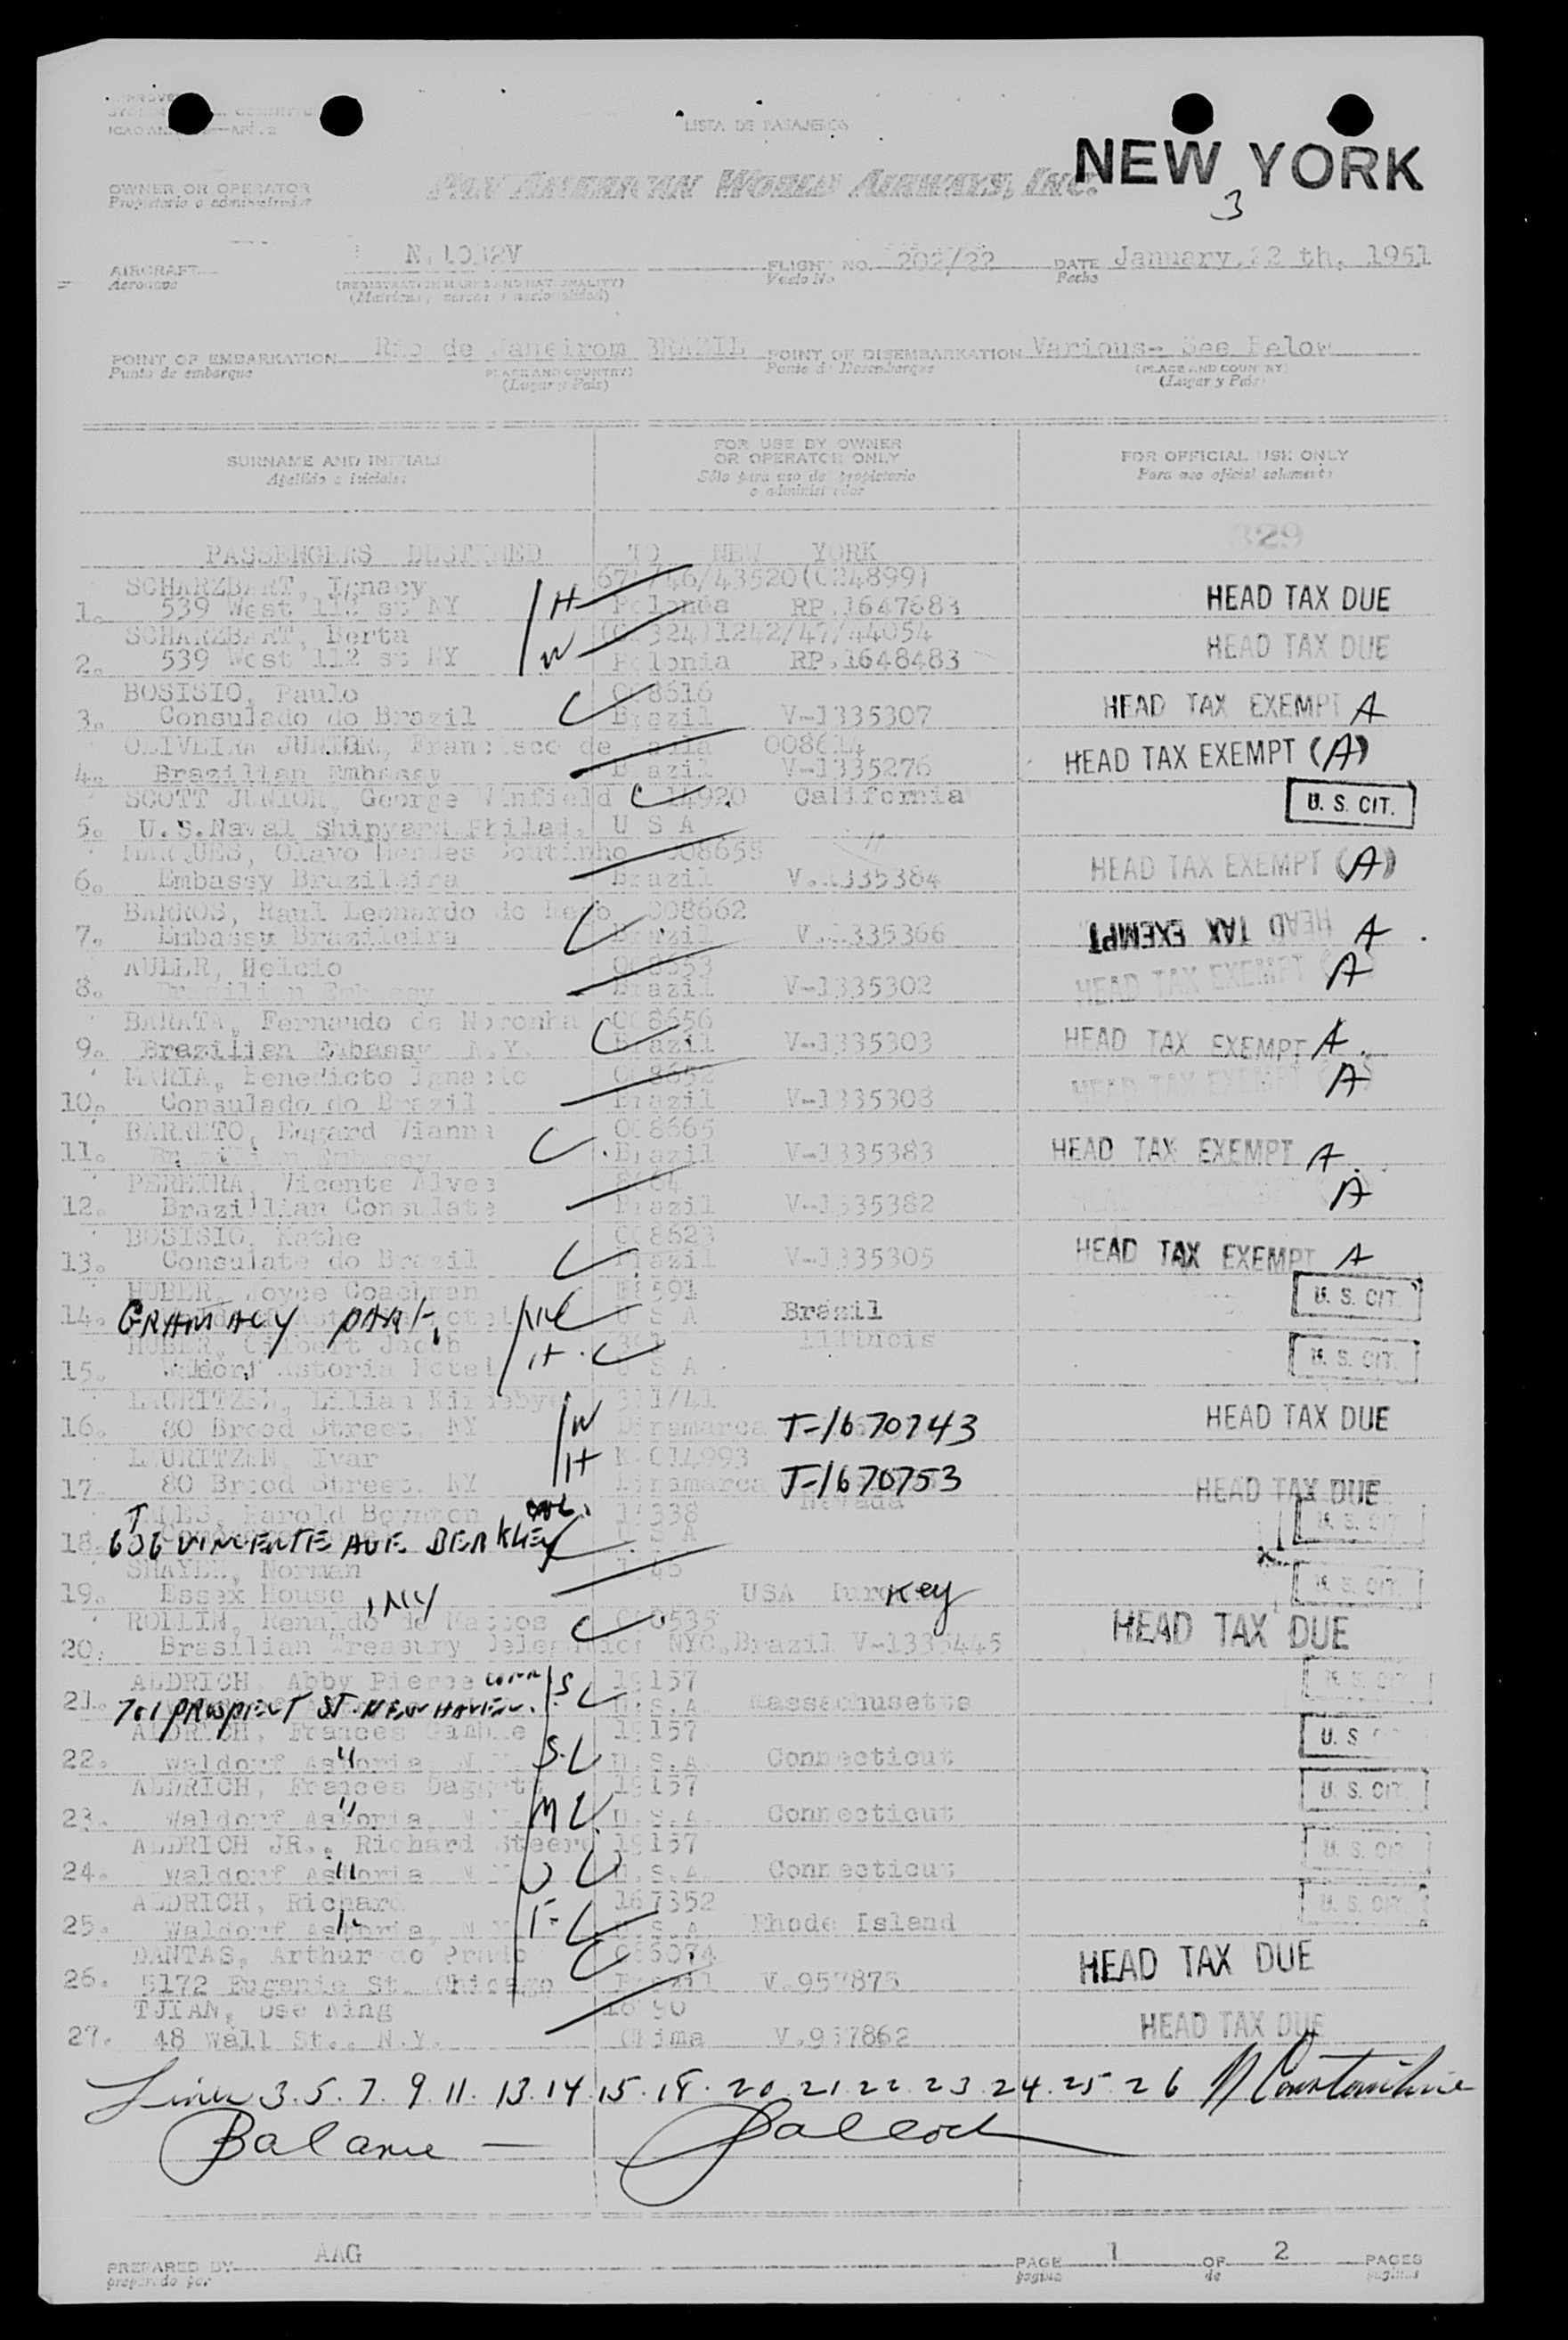 LISTA DE PASAJEROS
NEW YORK
3
OWNER OR OPERATOR
Propietario o administrador
PAN AMERICAN WORLD AIRWAYS, INC.
AIRCRAFT
Aeronave
(REGISTRATION MARKS AND NATIONALITY)
FLIGHT NO. 202/22
Vuelo No
DATE January, 22 th, 1951
Fecha
POINT OF EMBARKATION Rio de Janeirom BRAZIL
Punto de embarque
(PLACE AND COUNTRY)
(Lugar y Pais)
POINT OF DISEMBARKATION Various- See Below
Punto de Desembarque
(PLACE AND COUNTRY)
(Lugar y Pais)
SURNAME AND INITIALS
Apellido e iniciales
FOR USE BY OWNER
OR OPERATOR ONLY
Sólo para uso de propietario
o administrador
FOR OFFICIAL USE ONLY
Para uso oficial solamente
329
PASSENGERS DESTINED TO NEW YORK
SCHARZBART, Ignacy
1. 539 West 112 st NY H Polonia RP.1647683 HEAD TAX DUE
SCHARZBART, Berta
2. 539 West 112 st NY W Polonia RP.1648483 HEAD TAX DUE
BOSISIO, Paulo 008616
3. Consulado do Brazil Brazil V-1335307 HEAD TAX EXEMPT A
OLIVEIRA JUNIOR, Francisco de Paula 008614
4. Brazilian Embassy Brazil V-1335276 HEAD TAX EXEMPT (A)
SCOTT JUNIOR, George Winfield 14920 California
5. U.S.Naval Shipyard Philad. U S A U. S. CIT.
MARQUES, Olavo Mendes Coutinho 008658
6. Embassy Brazileira Brazil V.1335384 HEAD TAX EXEMPT (A)
BARROS, Raul Leonardo do Rego 008662
7. Embassy Brazileira Brazil V.1335366 HEAD TAX EXEMPT A
AULER, Helcio 008653
8. Brazilian Embassy Brazil V-1335302 HEAD TAX EXEMPT A
BARATA, Fernando de Noronha 008656
9. Brazilian Embassy N.Y. Brazil V-1335303 HEAD TAX EXEMPT A
MARIA, Benedicto Ignacio 008652
10. Consulado do Brazil Brazil V-1335308 HEAD TAX EXEMPT A
BARRETO, Edgard Vianna 008665
11. Brazilian Embassy Brazil V-1335383 HEAD TAX EXEMPT A
PEREIRA, Vicente Alves 8664
12. Brazillian Consulate Brazil V-1335382 A
BOSISIO, Kathe 008623
13. Consulate do Brazil Brazil V-1335305 HEAD TAX EXEMPT A
HUBER, Joyce Coachman
14. GRAMACY PARK, U S A Brazil U. S. CIT.
HUBER, Gilbert Jacob Illinois
15. Waldorf Astoria Hotel H U S A U. S. CIT.
LAURITZEN, Lilian
16. 80 Broad Street, NY W Dinamarca T-1670743 HEAD TAX DUE
LAURITZEN, Ivar
17. 80 Broad Street, NY H Dinamarca T-1670753 HEAD TAX DUE
Harold Boynton Nevada
18. 636 VINCENTE AVE BERKLEY U.S.A U. S. CIT.
Norman
19. Essex House, NY USA Turckey U. S. CIT.
ROLLIN, Renaldo de Mattos
20. Brasilian Treasury Delegation NYC. Brazil V-1335445 HEAD TAX DUE
ALDRICH, Abby Pierce CONN 19157
21. 701 PROSPECT ST. NEW HAVEN. S U.S.A Massachusetts U. S. CIT.
ALDRICH, Frances Gamble 19157
22. Waldorf Astoria, N.Y. " S. U.S.A Connecticut U. S. CIT.
ALDRICH, Frances Daggett 19157
23. Waldorf Astoria, N.Y. " M U.S.A Connecticut U. S. CIT.
ALDRICH JR., Richard Steere 19157
24. Waldorf Astoria, N.Y. " U.S.A. Connecticut U. S. CIT.
ALDRICH, Richard 167352
25. Waldorf Astoria, N.Y. " F- U.S.A Rhode Island U. S. CIT.
DANTAS, Arthur do Prado
26. 5172 Eugenie St. Chicago Brazil V.957875 HEAD TAX DUE
TJIAN, Dse Ning
27. 48 Wall St., N.Y. China V.957862 HEAD TAX DUE
Lines 3.5.7.9.11.13.14.15.18.20.21.22.23.24.25.26 N Constantine
Balance —
PREPARED BY AAG
preparado por
PAGE 1 OF 2 PAGES
pagina de paginas